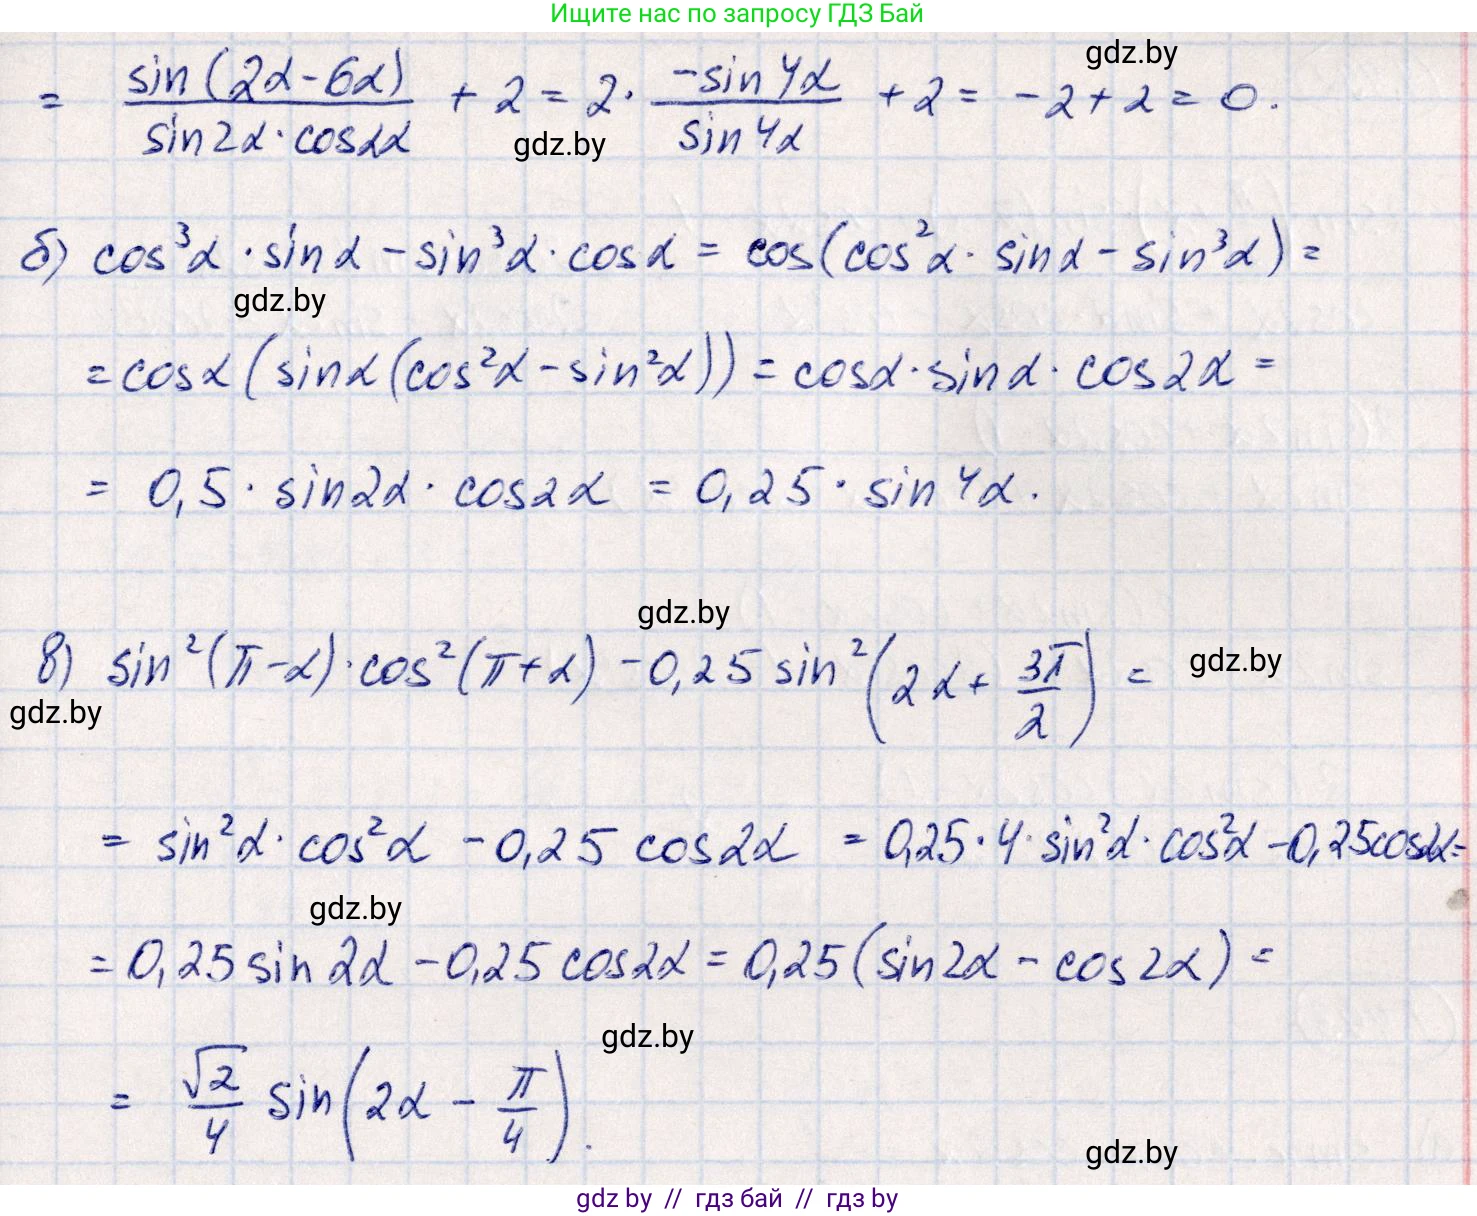 Ищите нас по запросу ГДЗ Бай
gdz.by
= sin(2α-6α) / sin2α·cos2α + 2 = 2· -sin4α / sin4α + 2 = -2+2 = 0.
gdz.by
б) cos³α·sinα - sin³α·cosα = cos(cos²α·sinα - sin³α) =
gdz.by
= cosα(sinα(cos²α - sin²α)) = cosα·sinα·cos2α =
= 0,5·sin2α·cos2α = 0,25·sin4α.
gdz.by
в) sin²(π-α)·cos²(π+α) - 0,25 sin²(2α + 3π/2) =
gdz.by
gdz.by
= sin²α·cos²α - 0,25 cos2α = 0,25·4·sin²α·cos²α - 0,25cos2α =
gdz.by
= 0,25 sin2α - 0,25 cos2α = 0,25(sin2α - cos2α) =
gdz.by
= √2/4 sin(2α - π/4).
gdz.by
gdz by // гдз бай // гдз by